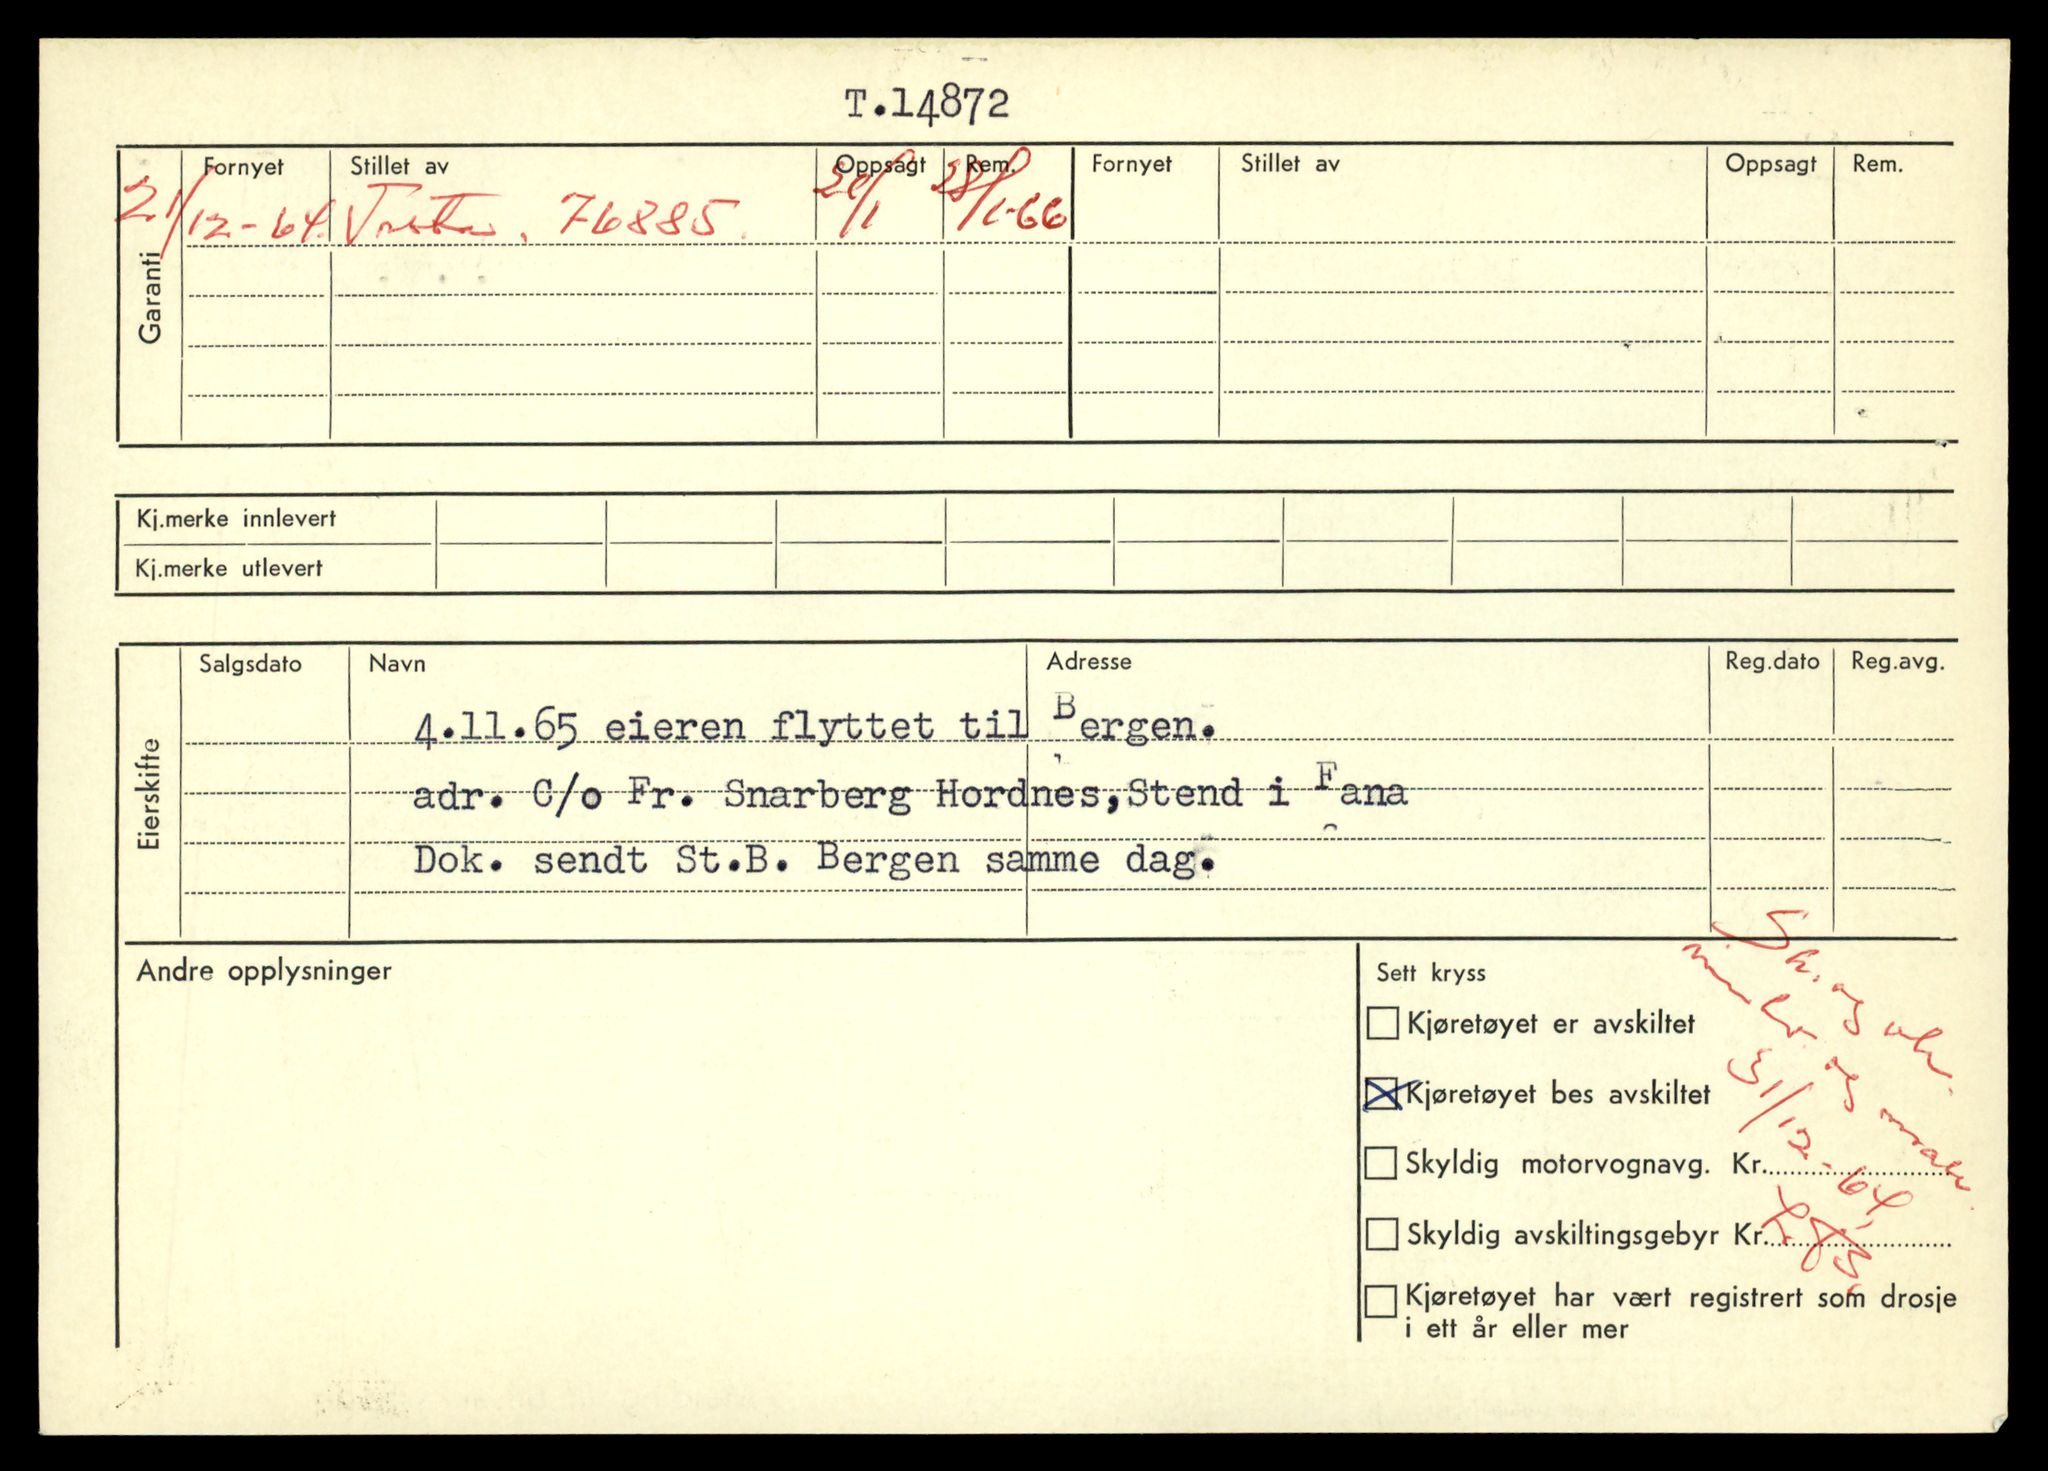 T.14872
Fornyet Stillet av Oppsagt Rem. Fornyet Stillet av Oppsagt Rem.
21/12-64. 76885. /1 28/1-66
Garanti
Kj.merke innlevert
Kj.merke utlevert
Salgsdato Navn Adresse Reg.dato Reg.avg.
Eierskifte
4.11.65 eieren flyttet til Bergen.
adr. C/o Fr. Snarberg Hordnes,Stend i Fana
Dok. sendt St.B. Bergen samme dag.
Andre opplysninger
Sett kryss
Kjøretøyet er avskiltet
Kjøretøyet bes avskiltet
Skyldig motorvognavg. Kr.
Skyldig avskiltingsgebyr Kr.
Kjøretøyet har vært registrert som drosje
i ett år eller mer
og
og
31/12-64